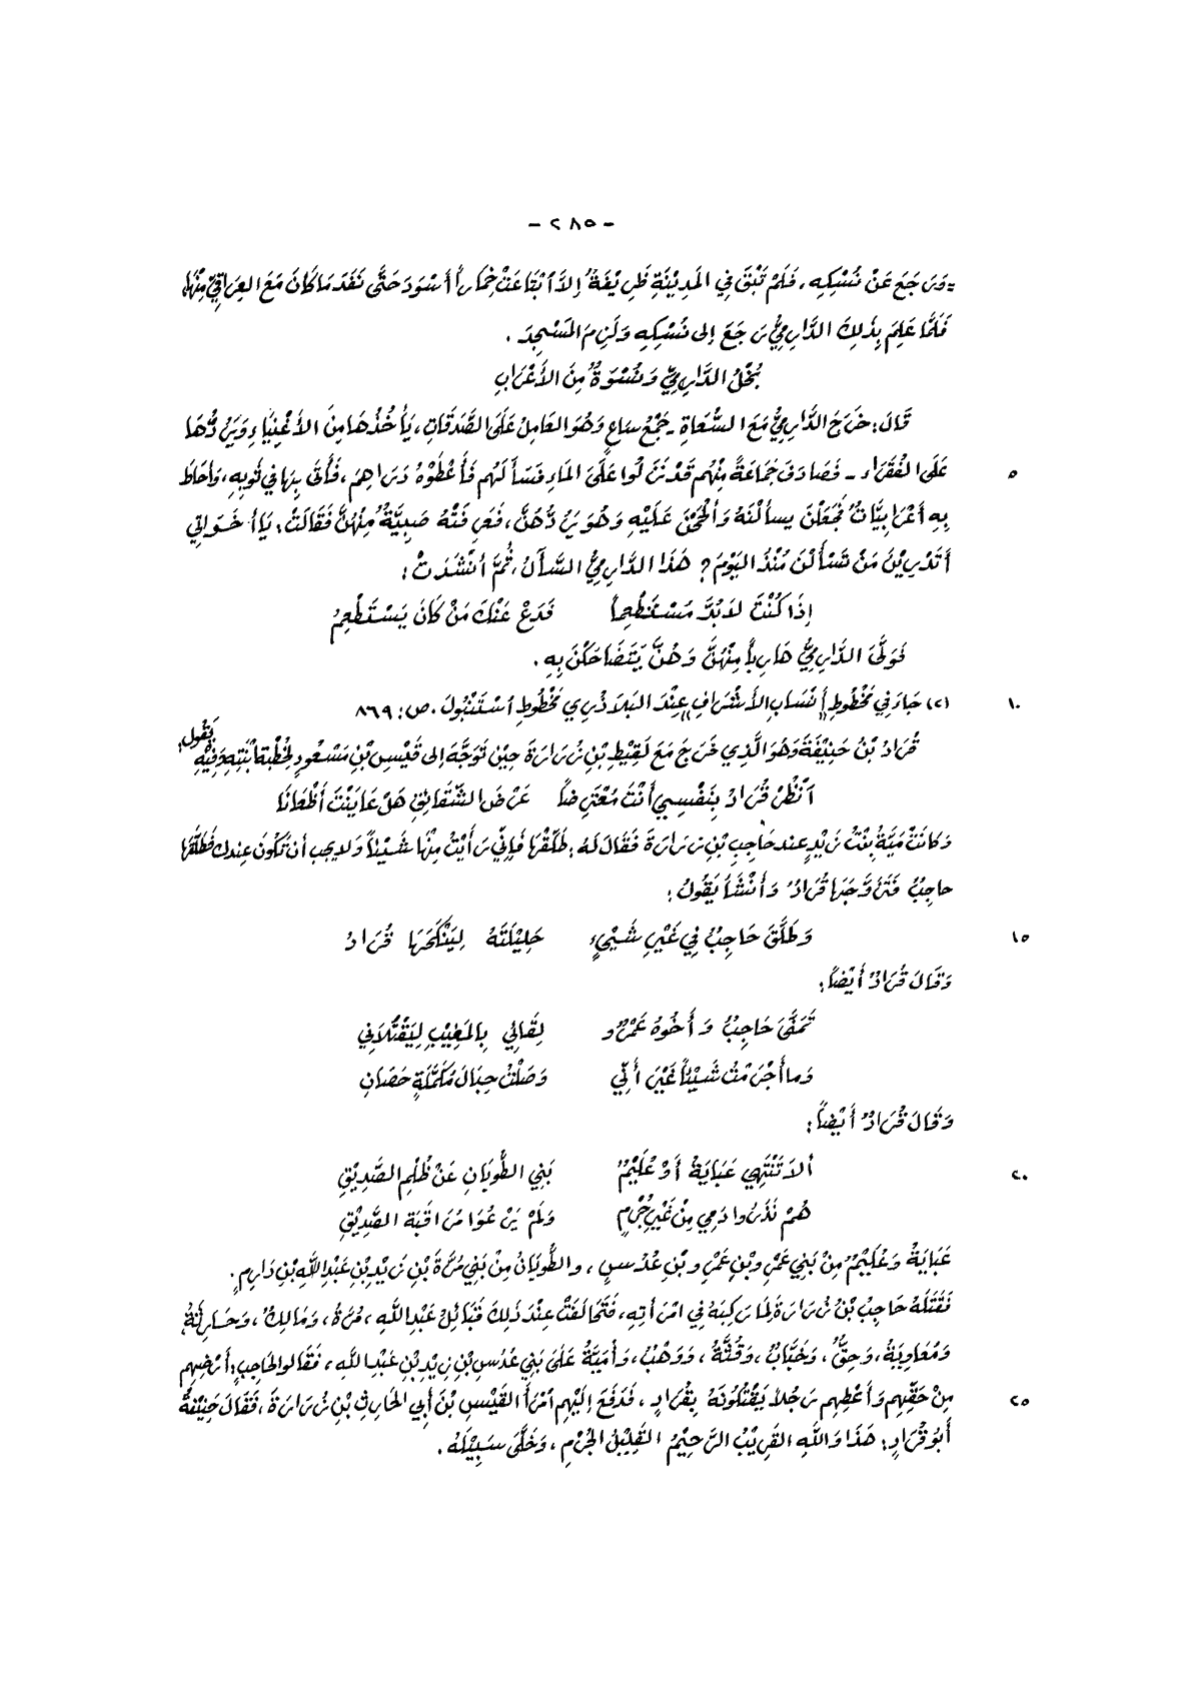 - ٢٨٥ -
= وَرَجَعَ عَنْ نُسْكِهِ، فَلَمْ تَبْقَ فِي المَدِيْنَةِ ظَرِيْفَةٌ إلاَّ ابْتَاعَتْ خِمَاراً أَسْوَدَ حَتَّى نَفَدَ مَا كَانَ مَعَ العِرَاقِيِّ مِنْهَا،
فَلَمَّا عَلِمَ بِذَلِكَ الدَّارِمِيُّ رَجَعَ إلى نُسْكِهِ وَلَزِمَ المَسْجِدَ .
بُخْلُ الدَّارِمِيِّ وَنُسْوَةٌ مِنَ الأَعْرَابِ
قَالَ: خَرَجَ الدَّارِمِيُّ مَعَ السُّعَاةِ - جَمْعُ سَاعٍ وَهُوَ العَامِلُ عَلَى الصَّدَقَاتِ، يَأْخُذُهَا مِنَ الأَغْنِيَاءِ وَيَرُدُّهَا
عَلَى الفُقَرَاءِ - فَصَادَفَ جَمَاعَةً مِنْهُم قَدْ نَزَلُوا عَلَى المَاءِ فَسَأَلَهُم فَأَعْطَوْهُ دَرَاهِمَ، فَأَتَى بِهَا فِي ثَوبِهِ، وَأَحَاطَ ٥
بِهِ أَعْرَابِيَّاتٌ فَجَعَلْنَ يسألْنَهُ وَأَلْحَحْنَ عَلَيْهِ وَهُوَ يَرُدُّهُنَّ، فَعَرِفَتْهُ صَبِيَّةٌ مِنْهُنَّ فَقَالَتْ: يَا أَخَوَاتِي
أَتَدْرِيْنَ مَنْ تَسْأَلْنَ مُنْذُ اليَوْمَ؟ هَذَا الدَّارِمِيُّ السَّأَّلُ، ثُمَّ أَنْشَدَتْ:
إِذَا كُنْتَ لاَبُدَّ مُسْتَطْعِماً فَدَعْ عَنْكَ مَنْ كَانَ يَسْتَطْعِمُ
فَوَلَّى الدَّارِمِيُّ هَارِباً مِنْهُنَّ وَهُنَّ يَتَضَاحَكْنَ بِهِ .
(٢) جَاءَ فِي مَخْطُوطِ «أَنْسَابِ الأَشْرَافِ» عِنْدَ البَلاَذُرِي مَخْطُوطِ اسْتَنْبُولَ . ص: ٨٦٩ ١٠
قُرَادُ بْنُ حَنِيْفَةَ وَهُوَ الَّذِي خَرَجَ مَعَ لَقِيْطِ بْنِ زُرَارَةَ حِيْنَ تَوَجَّهَ إلى قَيْسِ بْنِ مَسْعُودٍ لِخُطْبَةِ ابْنَتِهِ وَفِيْهِ يَقُولُ:
اُنْظُرْ قُرَادُ بِنَفْسِي أَنْتَ مُعْتَرِضاً عَرْضَ الشَّقَائِقِ هَلْ عَايَنْتَ أَظْعَانَا
وَكَانَتْ مَيَّةُ بِنْتُ زَيْدٍ عِند حَاجِبِ بْنِ زُرَارَةَ فَقَالَ لَهُ: طَلِّقْهَا فَإِنِّي رَأَيْتُ مِنْهَا شَيْئاً وَلا يجب أن تَكُونَ عِندك فَطَلَّقَهَا
حاجِبٌ فَتَزَوَّجَهَا قُرَادٌ وَأَنْشَأَ يَقُولُ:
وَطَلَّقَ حَاجِبٌ فِي غَيْرِ شَيْءٍ حَلِيْلَتَهُ لِيَنْكَحَهَا قُرَادُ ١٥
وَقَالَ قُرَادٌ أَيْضاً:
تَمَنَّى حَاجِبٌ وَأَخُوهُ عَمْرٌو لِقَائِي بِالمَغِيْبِ لِيَقْتُلاَنِي
وَما أَجْرَمْتُ شَيْئاً غَيْرَ أَنِّي وَصَلْتُ حِبَالَ مُكَمَّلَةٍ حَصَانِ
وَقَالَ قُرَادٌ أَيْضاً:
أَلاَ تَنْتَهِي عَبَايَةُ أَوْ عُلَيْمٌ بَنِي الطُّويَانِ عَنْ ظُلْمِ الصَّدِيْقِ ٢٠
هُمْ نَذَرُوا دَمِي مِنْ غَيْرِ جُرْمٍ وَلَمْ يَرْعُوا مُرَاقَبَةَ الصَّدِيْقِ
عَبَايَةُ وَعُلَيْمٌ مِنْ بَنِي عَمْرِو بْنِ عَمْرِو بْنِ عُدُسٍ، والطُّويَانُ مِنْ بَنِي مُرَّةَ بْنِ زَيْدِ بْنِ عَبْدِ اللَّهِ بْنِ دَارِمٍ .
فَقَتَلَهُ حَاجِبُ بْنُ زُرَارَةَ لِمَا رَكِبَهُ فِي امْرَأَتِهِ، فَتَحَالَفَتْ عِنْدَ ذَلِكَ قَبَائِلُ عَبْدِ اللَّهِ، مُرَّةُ، وَمَالِكٌ، وَحَارِثَةُ،
وَمُعَاوِيَةُ، وَحِقٌّ، وَخَبَّابٌ، وَقُنَّةُ، وَوَهْبٌ، وَأُمَيَّةُ عَلَى بَنِي عُدُسِ بْنِ زَيْدِ بْنِ عَبْدِ اللَّهِ، فَقَالُوا لِحَاجِبٍ: أَرْضِهِم
مِنْ حَقِّهِم وَأَعْطِهِم رَجُلاً يَقْتُلُونَهُ بِقُرَادٍ، فَدَفَعَ إِلَيْهِم امْرَأَ القَيْسِ بْنَ أَبِي الحَارِثِ بْنِ زُرَارَةَ، فَقَالَ حَنِيْفَةُ ٢٥
أَبُو قُرَادٍ: هَذَا وَاللَّهِ القَرِيْبُ الرَّحِيْمُ القَلِيْلُ الجُرْمِ، وَخَلَّى سَبِيْلَهُ .